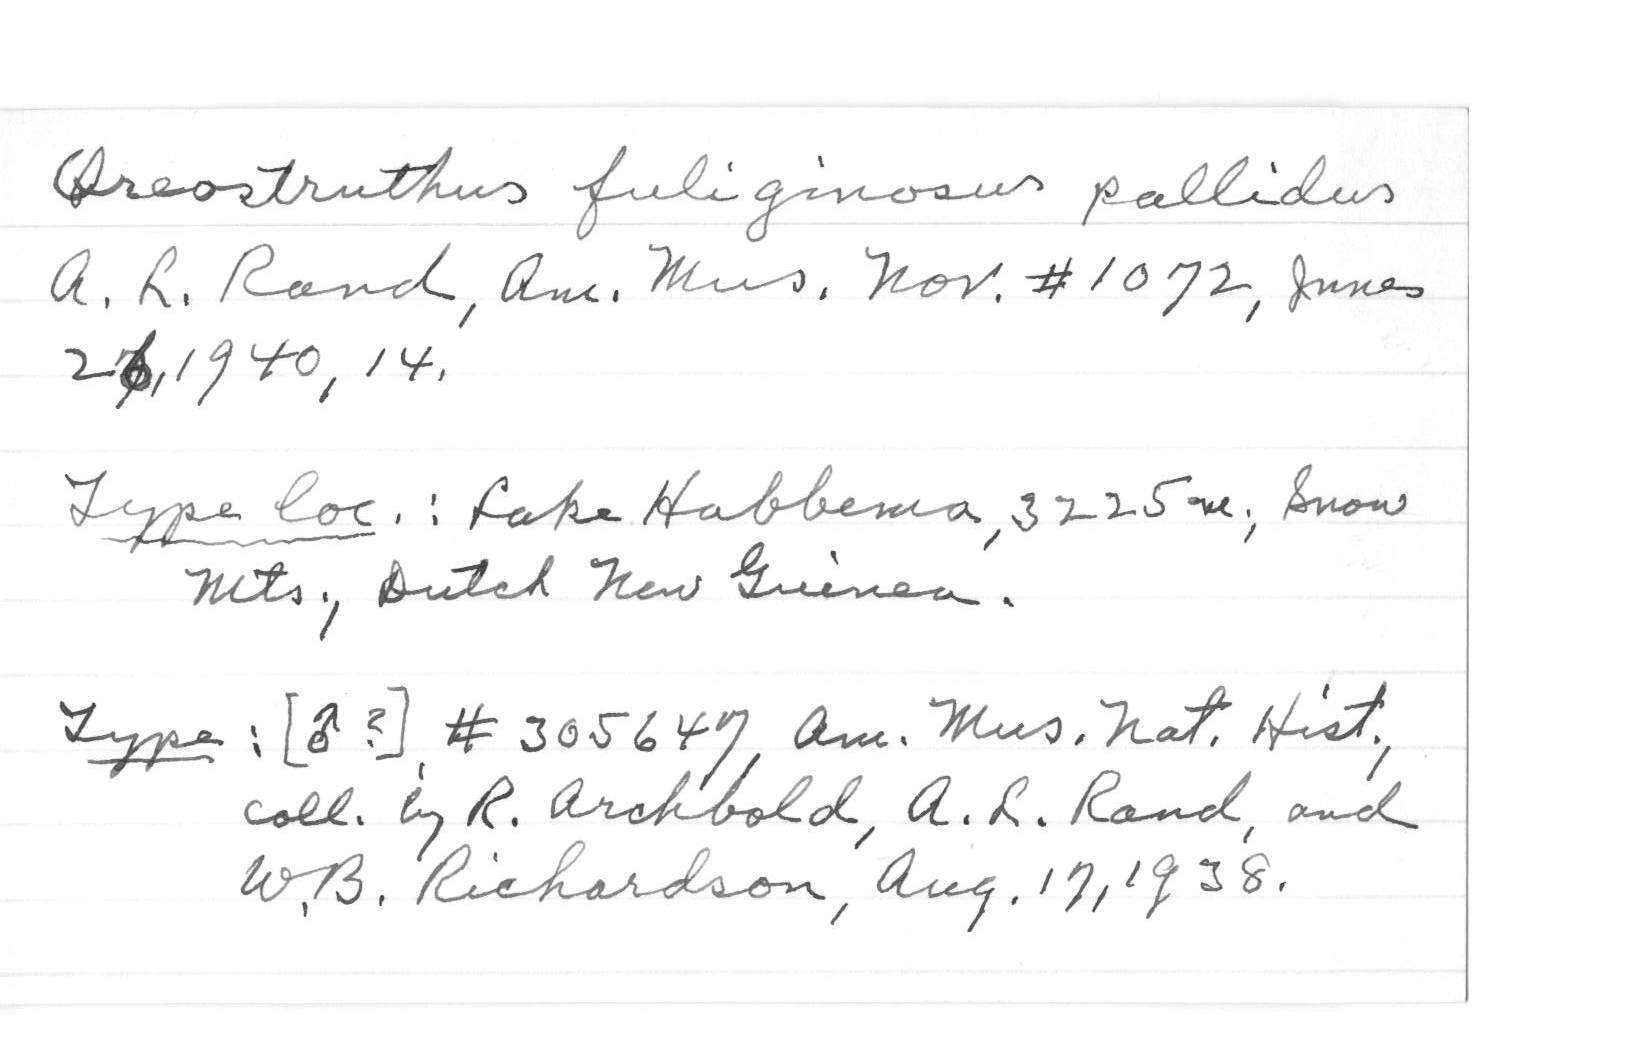 Oreostruthus fuliginosus pallidus
A. L. Rand, Am. Mus. Nov. #1072, June
26, 1940, 14.
Type loc.: Lake Habbema, 3225 m., Snow
Mts., Dutch New Guinea.
Type: [♂?], #305647, Am. Mus. Nat. Hist.,
coll. by R. Archbold, A. L. Rand, and
W. B. Richardson, Aug. 17, 1938.